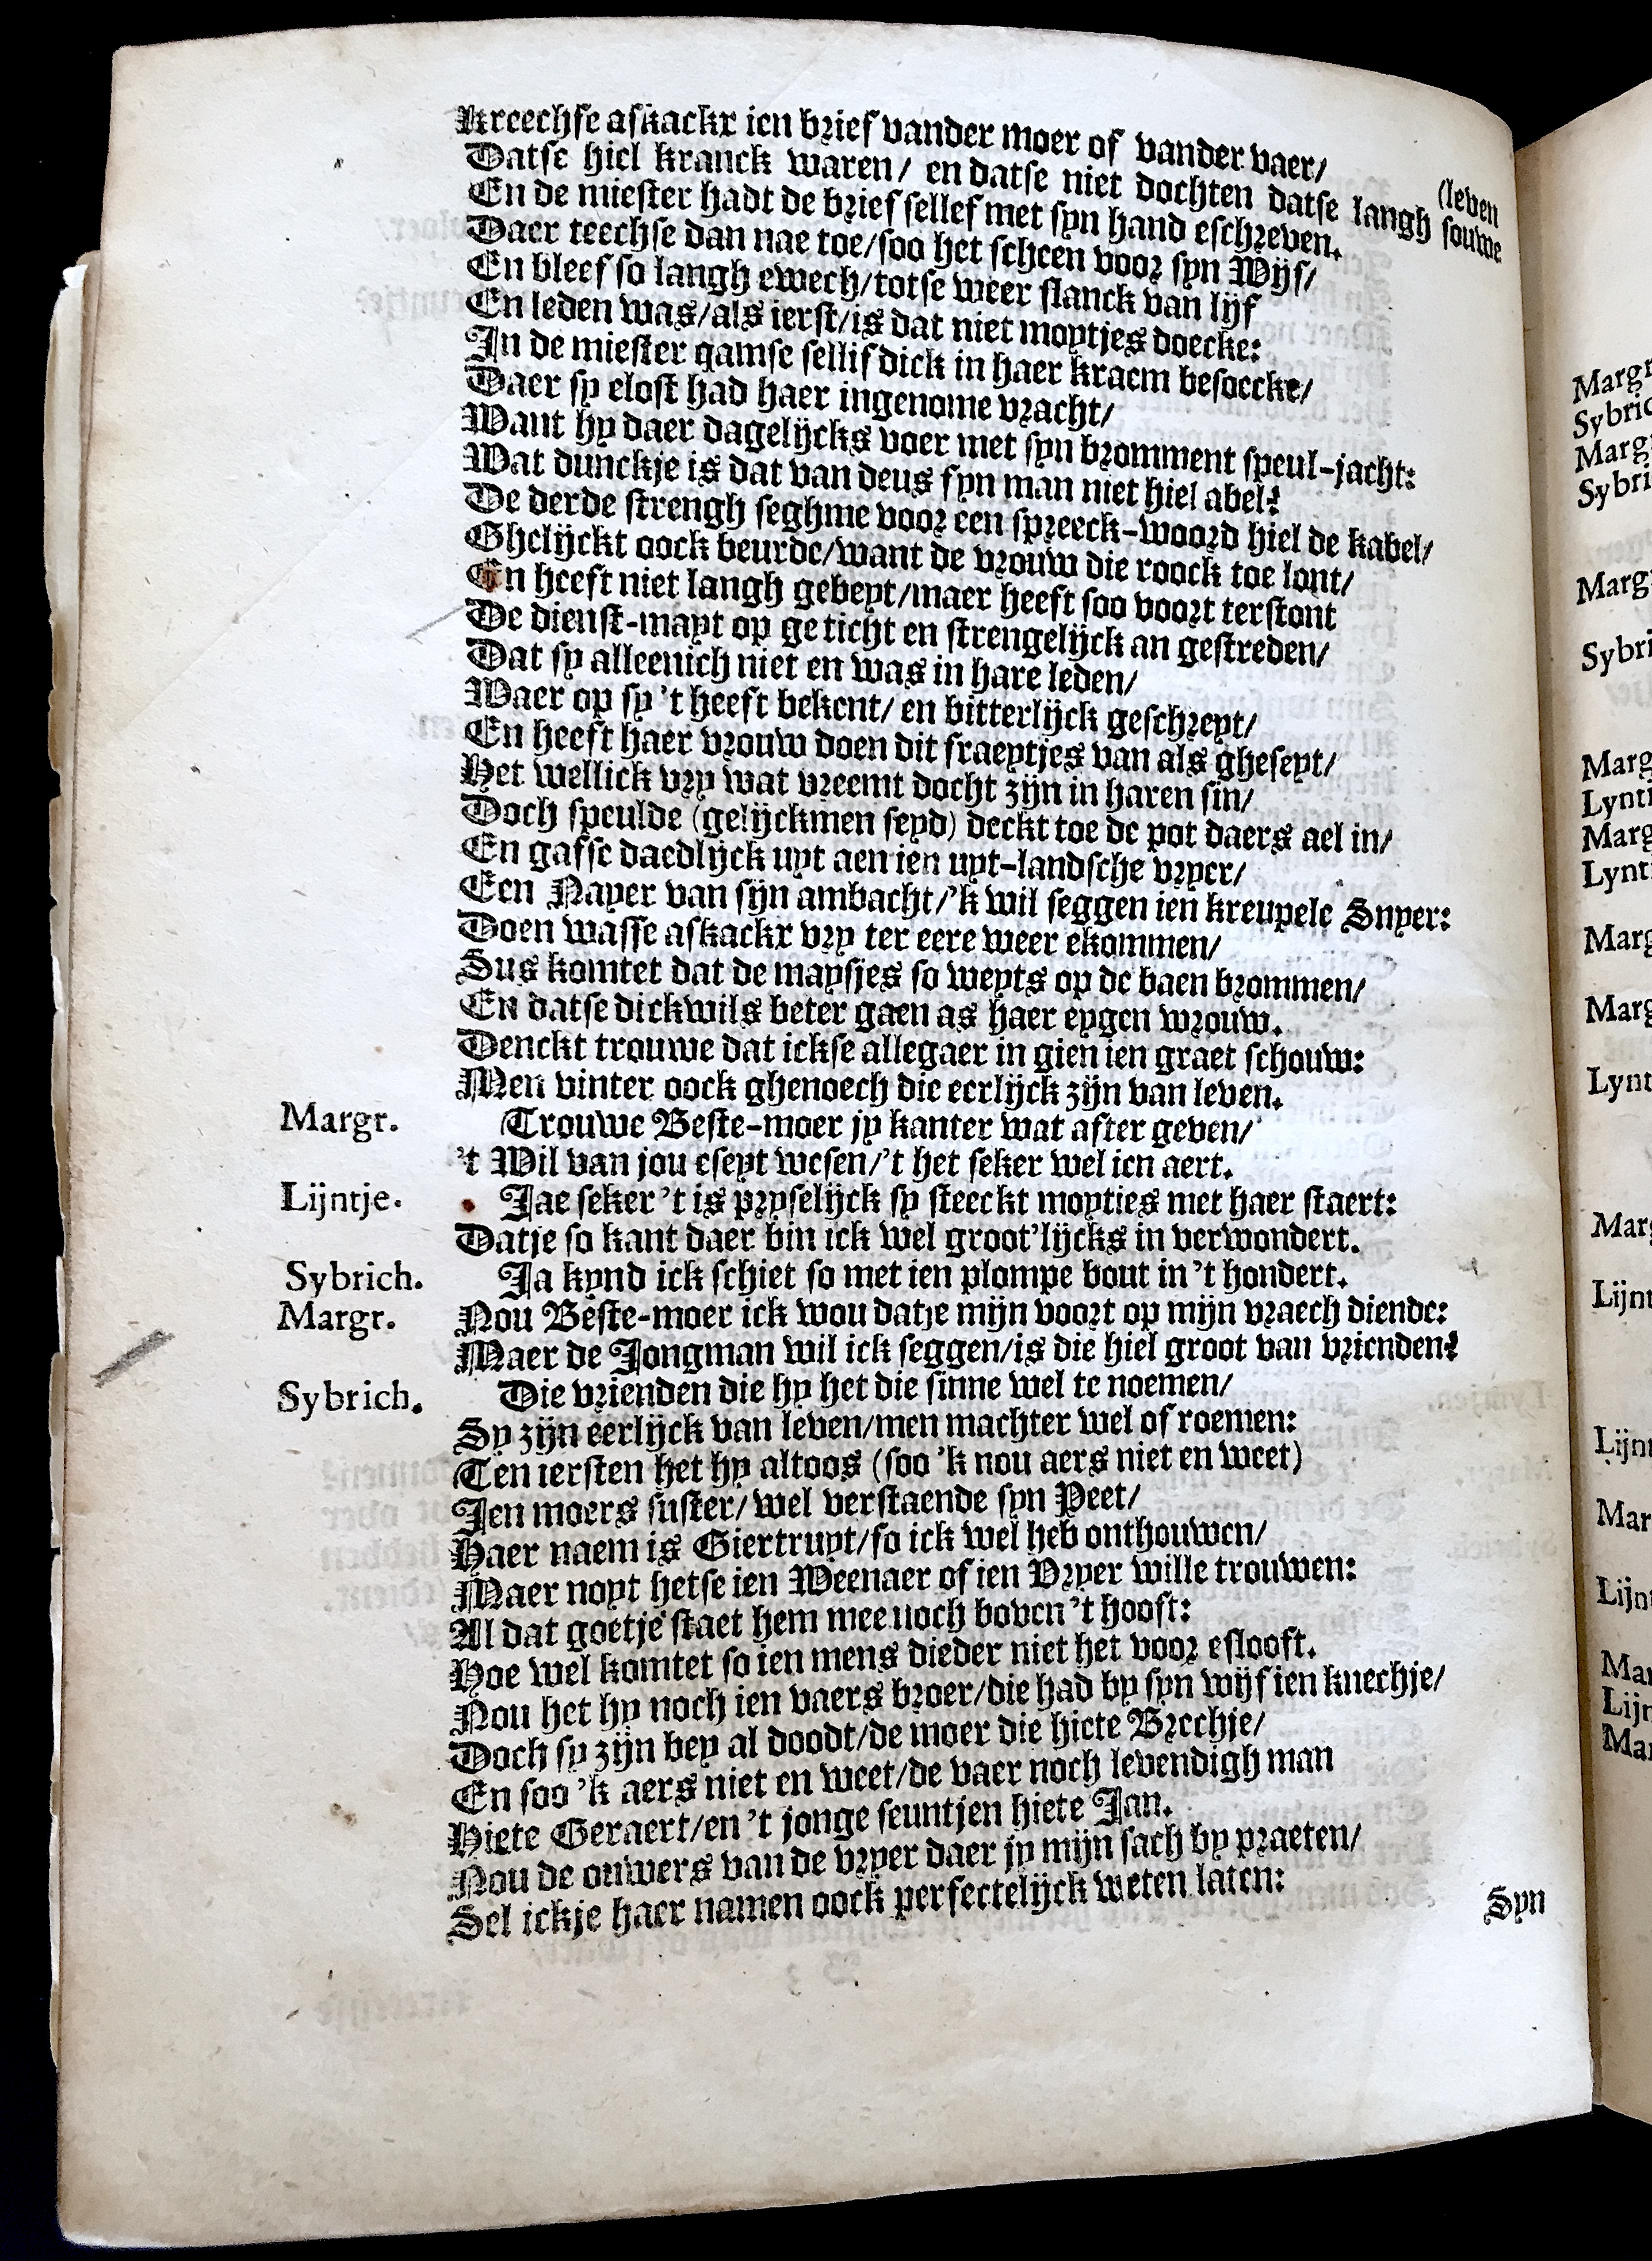 Kreechse askackx ien brief vander moer of vander vaer/
Datse hiel kranck waren/ en datse niet dochten datse langh souwe (leven
En de miester hadt de brief sellef met syn hand eschreven.
Daer teechse dan nae toe/soo het scheen voor syn Wijf/
En bleef so langh ewech/totse weer slanck van lijf
En leden was/als ierst/is dat niet moytjes doecke:
In de miester qamse sellif dick in haer kraem besoecke/
Daer sy elost had haer ingenome vracht/
Want hy daer dagelijcks voer met syn bromment speul-jacht:
Wat dunckje is dat van deus fyn man niet hiel abel?
De derde strengh seghme voor een spreeck-woord hiel de kabel/
Ghelijckt oock beurde/want de vrouw die roock toe lont/
En heeft niet langh gebeyt/maer heeft soo voort terstont
De dienst-mayt op geticht en strengelijck an gestreden/
Dat sy alleenich niet en was in hare leden/
Waer op sy 't heeft bekent/ en bitterlijck geschreyt/
En heeft haer vrouw doen dit fraeytjes van als gheseyt/
Het wellick vry wat vreemt docht zijn in haren sin/
Doch speulde (gelijckmen seyd) deckt toe de pot daers ael in/
En gafse daedlijck uyt aen ien uyt-landsche vryer/
Een Nayer van sijn ambacht/'k wil seggen ien kreupele Snyer:
Doen wasse askackx vry ter eere weer ekommen/
Sus komtet dat de maysjes so weyts op de baen brommen/
En datse dickwils beter gaen as haer eygen vrouw.
Denckt trouwe dat ickse allegaer in gien ien graet schouw:
Men vinter oock ghenoech die eerlijck zijn van leven.
Margr. Trouwe Beste-moer jy kanter wat after geven/
't Wil van jou eseyt wesen/'t het seker wel ien aert.
Lijntje. Jae seker 't is pryselijck sy steeckt moyties met haer staert:
Datje so kant daer bin ick wel groot'lijcks in verwondert.
Sybrich. Ja kynd ick schiet so met ien plompe bout in 't hondert.
Margr. Nou Beste-moer ick wou datje mijn voort op mijn vraech diende:
Maer de Jongman wil ick seggen/is die hiel groot van vrienden?
Sybrich. Die vrienden die hy het die sinne wel te noemen/
Sy zijn eerlijck van leven/men machter wel of roemen:
Ten iersten het hy altoos (soo 'k nou aers niet en weet)
Ien moers suster/ wel verstaende syn Peet/
Haer naem is Giertruyt/so ick wel heb onthouwen/
Maer noyt hetse ien Weenaer of ien Vryer wille trouwen:
Al dat goetje staet hem mee noch boven 't hooft:
Hoe wel komtet so ien mens dieder niet het voor eslooft.
Nou het hy noch ien vaers broer/die had by syn wijf ien knechje/
Doch sy zijn bey al doodt/de moer die hiete Brechje/
En soo 'k aers niet en weet/de vaer noch levendigh man
Hiete Geraert/en 't jonge seuntjen hiete Jan.
Nou de ouwers van de vryer daer jy mijn sach by praeten/
Sel ickje haer namen oock perfectelijck weten laten:
Syn
Margr
Sybric
Marg
Sybri
Marg
Sybri
Marg
Lynti
Marg
Lynt
Marg
Marg
Lynt
Marg
Lijnt
Lijn
Mar
Lijn
Mar
Lijn
Mar